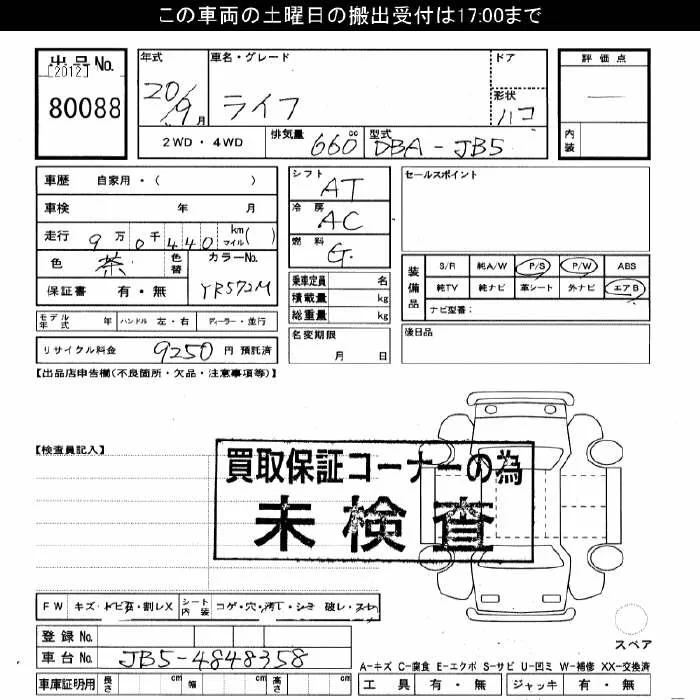 この車両の土曜日の搬出受付は17:00まで
出品No.
[2012]
80088
年式
20/9月
車名・グレード
ライフ
ドア
形状
ハコ
評価点
内装
2WD・4WD
排気量 660 cc
型式 DBA-JB5
車歴 自家用・( )
車検 年 月
走行 9万0千440 km マイル( )
色 茶 色替
カラーNo. YR572M
保証書 有・無
モデル年式 年 ハンドル 左・右 ディーラー・並行
リサイクル料金 9250 円 預託済
シフト AT
冷房 AC
燃料 G.
乗車定員 名
積載量 kg
総重量 kg
名変期限
月 日
セールスポイント
装備品
S/R 純A/W P/S P/W ABS
純TV 純ナビ 革シート 外ナビ エアB
ナビ型番:
後日品
【出品店申告欄(不良箇所・欠品・注意事項等)】
【検査員記入】
買取保証コーナーの為
未検査
FW キズ・トビ石・割レX シート内装 コゲ・穴・汚レ・シミ 破レ・スレ
登録No.
車台No. JB5-4848358
車庫証明用 長さ cm 幅 cm 高さ cm
スペア
A-キズ C-腐食 E-エクボ S-サビ U-凹ミ W-補修 XX-交換済
工具 有・無 ジャッキ 有・無